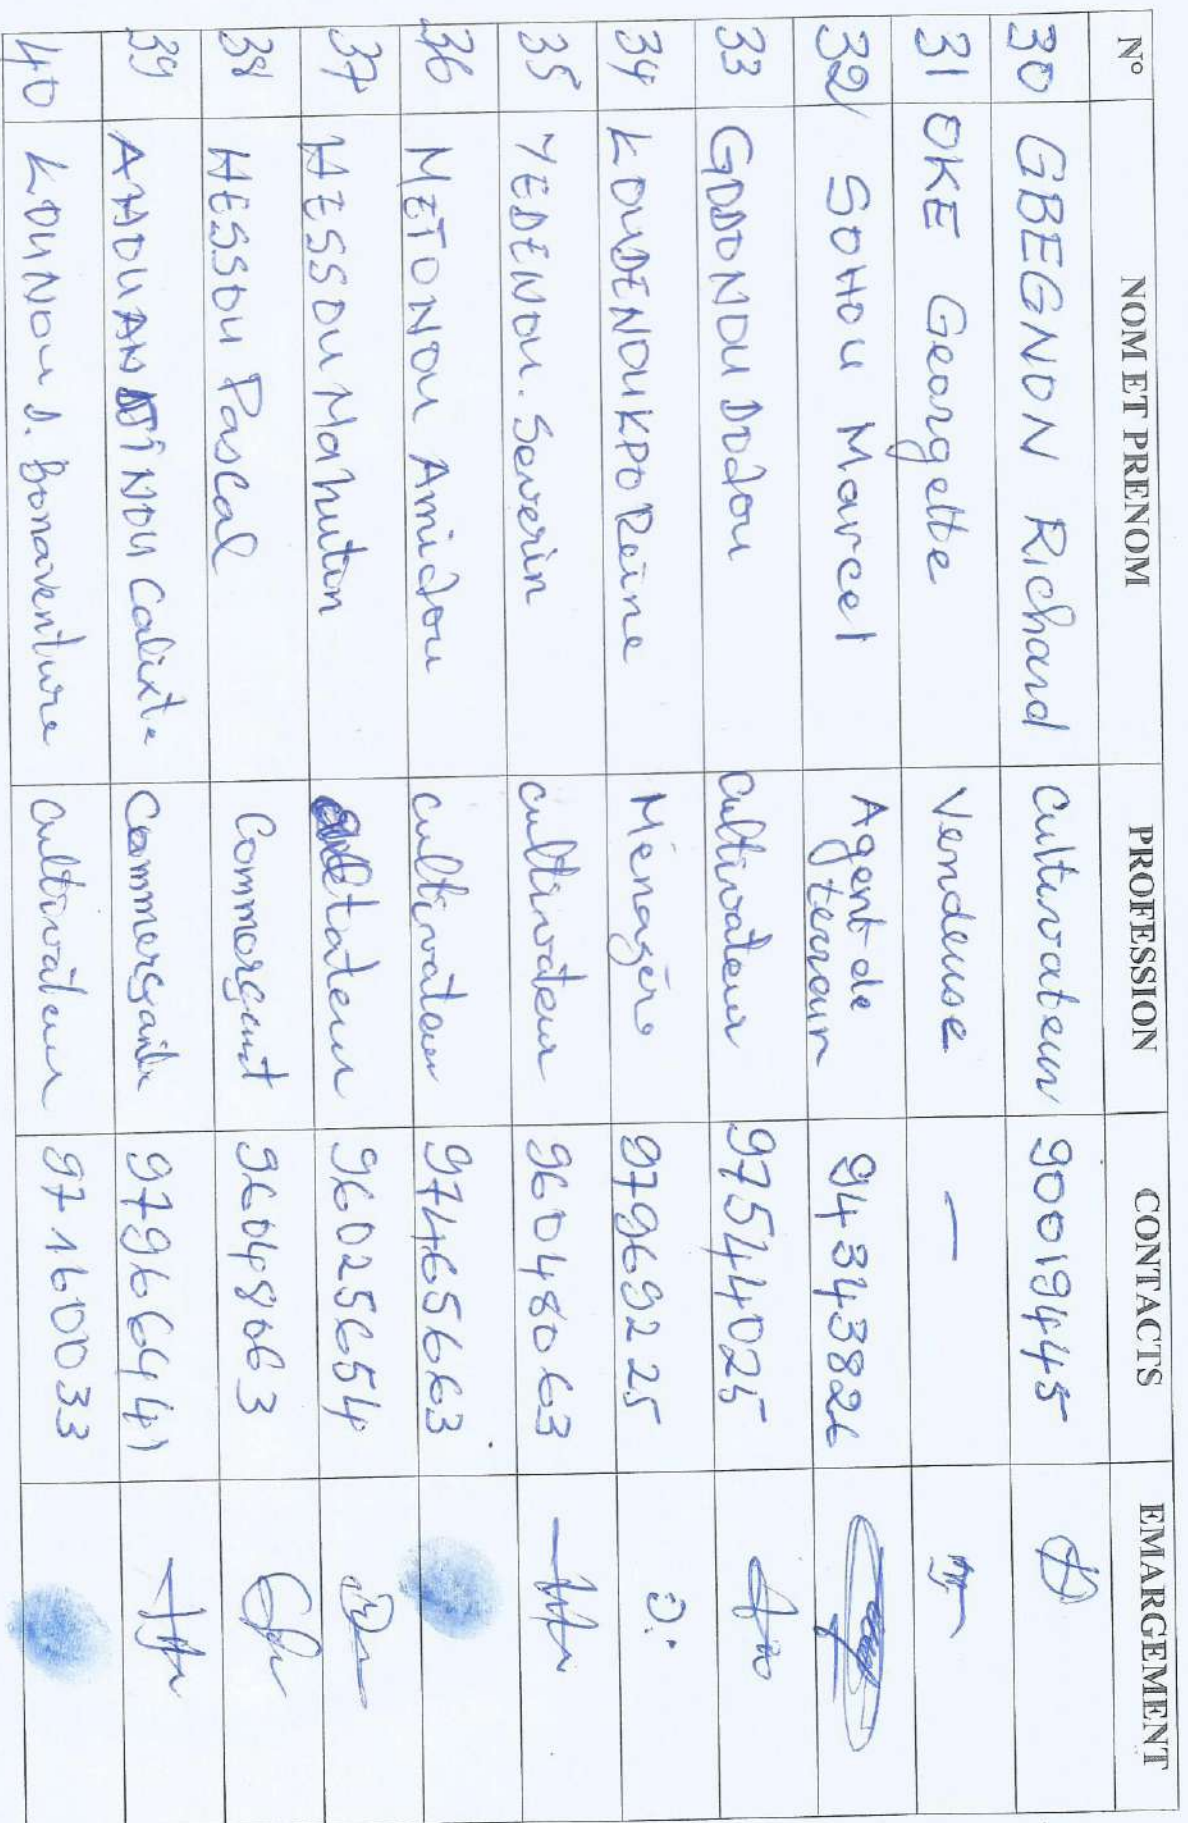 N° NOM ET PRENOM PROFESSION CONTACTS EMARGEMENT
30 GBEGNON Richard Cultivateur 90019445
31 OKE Georgette Vendeuse —
32 SOHOU Marcel Agent de terrain 94343826
33 GODONOU Dodou Cultivateur 97544025
34 KOUDENOUKPO Reine Ménagère 97969225
35 YEDENOU. Severin Cultivateur 96048063
36 METONOU Amidou Cultivateur 97465663
37 HESSOU Mahutin 96025654
38 HESSOU Pascal Commerçant 96048063
39 Calixte Commerçant 97966441
40 KOUNOU D. Bonaventure Cultivateur 97160033